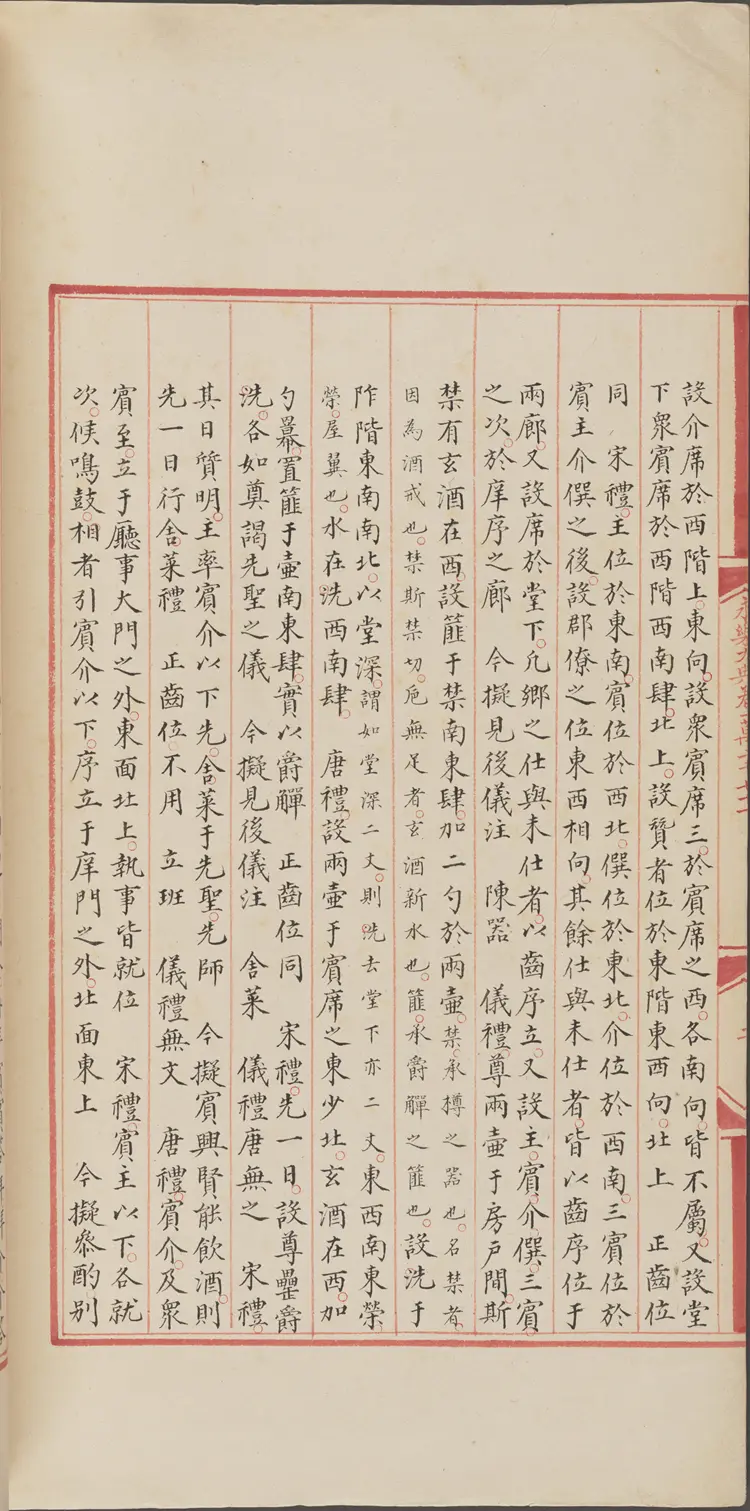 設介席於西階上東向設衆賓席三於賓席之西各南向皆不屬又設堂
下衆賓席於西階西南肆北上設贊者位於東階東西向北上 正齒位
同 宋禮主位於東南賓位於西北僎位於東北介位於西南三賓位於
賓主介僎之後設郡僚之位東西相向其餘仕與未仕者皆以齒序位于
兩廊又設席於堂下凡鄉之仕與未仕者以齒序立又設主賓介僎三賓
之次於庠序之廊 今擬見後儀注 陳器 儀禮尊兩壺于房戶間斯
禁有玄酒在西設篚于禁南東肆加二勺於兩壺禁承樽之器也名禁者
因為酒戒也禁斯禁切巵無足者玄酒新水也篚承爵觶之篚也設洗于
阼階東南南北以堂深謂如堂深二丈則洗去堂下亦二丈東西南東榮
榮屋翼也水在洗西南肆 唐禮設兩壺于賓席之東少北玄酒在西加
勺羃置篚于壺南東肆實以爵觶 正齒位同 宋禮先一日設尊罍爵
洗各如奠謁先聖之儀 今擬見後儀注 舍菜 儀禮唐無之 宋禮
其日質明主率賓介以下先舍菜于先聖先師 今擬賓興賢能飲酒則
先一日行舍菜禮 正齒位不用 立班 儀禮無文 唐禮賓介及衆
賓至立于廳事大門之外東面北上執事皆就位 宋禮賓主以下各就
次候鳴鼓相者引賓介以下序立于庠門之外北面東上 今擬叅酌別